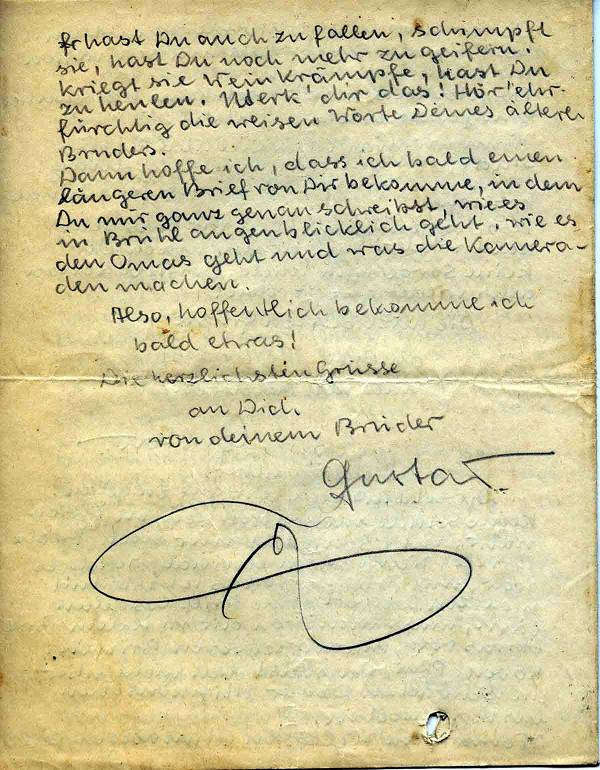 hast Du auch zu fallen, schimpft
sie, hast Du noch mehr zu geifern.
Kriegt sie Weinkrämpfe, hast Du
zu heulen. Merk' dir das! Hör' ehr-
fürchtig die weisen Worte Deines älteren
Bruders.
Dann hoffe ich, dass ich bald einen
längeren Brief von Dir bekomme, in dem
Du mir ganz genau schreibst, wie es
in Brühl augenblicklich geht, wie es
den Omas geht und was die Kamera-
den machen.
Also, hoffentlich bekomme ich
bald etwas!
Die herzlichsten Grüsse
an Dich
von deinem Bruder
Gustav.